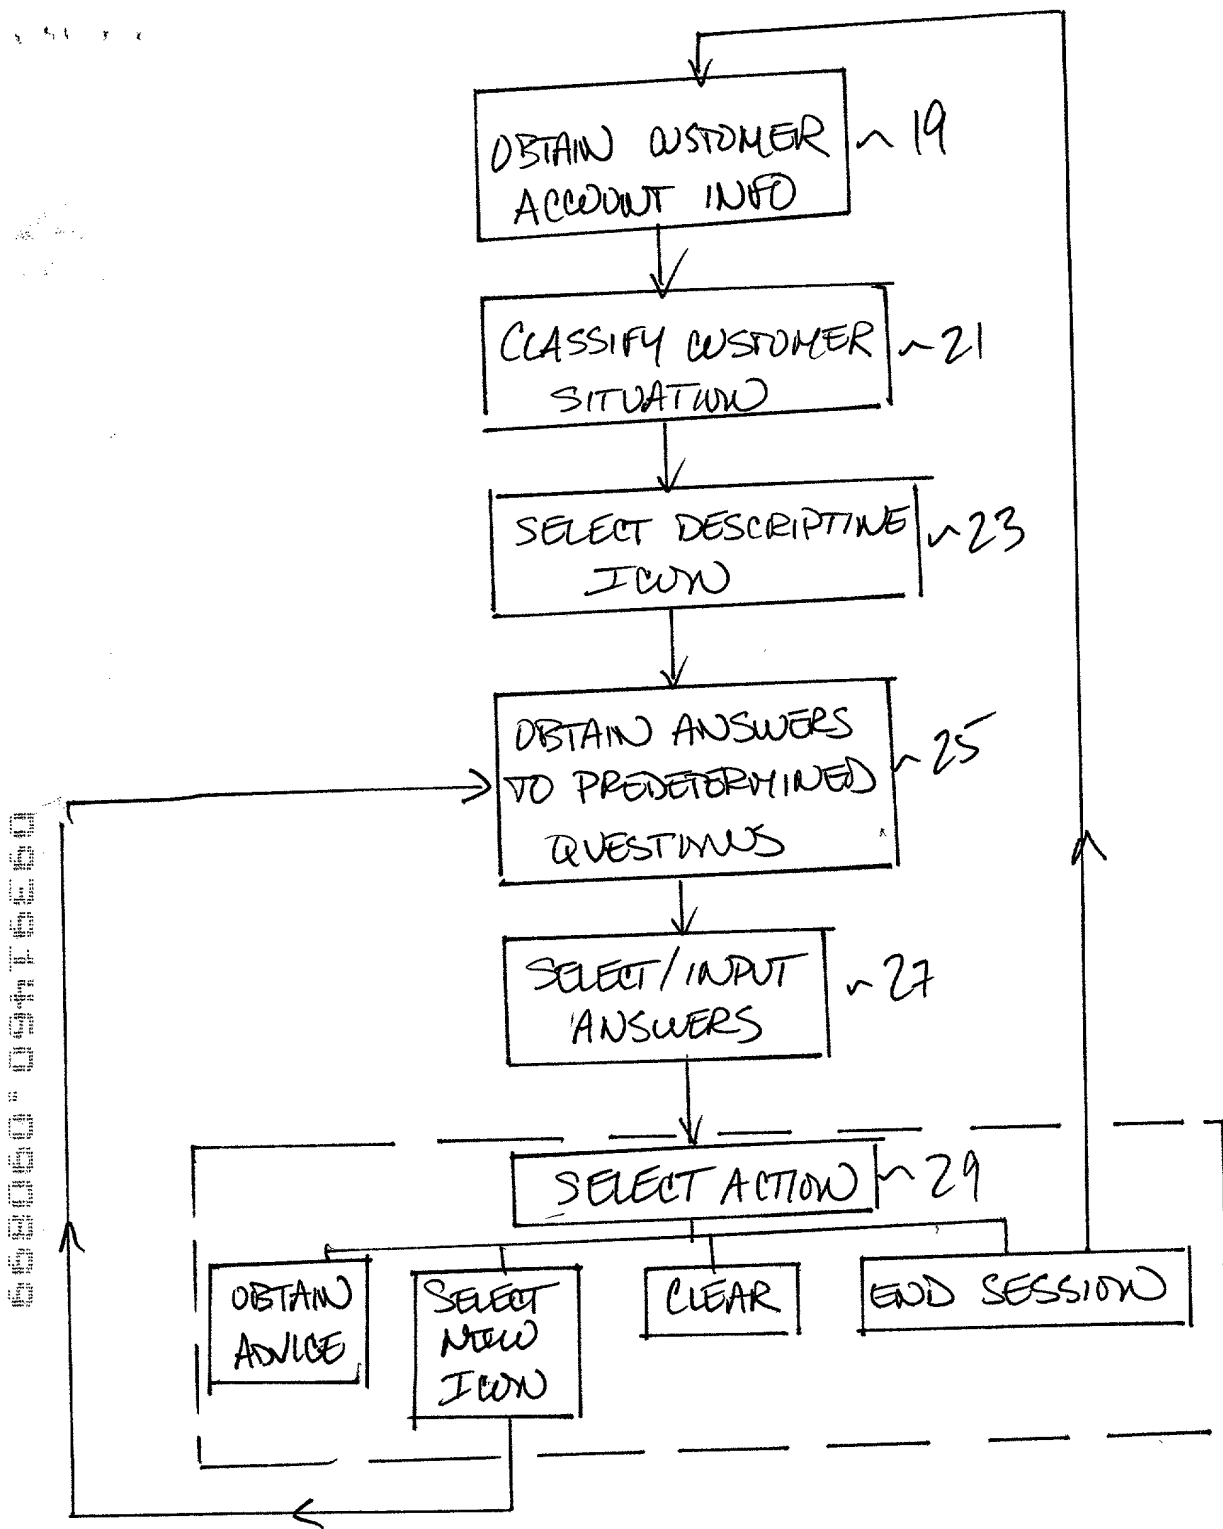 OBTAIN CUSTOMER
ACCOUNT INFO
~ 19
CLASSIFY CUSTOMER
SITUATION
~ 21
SELECT DESCRIPTIVE
ICON
~ 23
OBTAIN ANSWERS
TO PREDETERMINED
QUESTIONS
~ 25
SELECT/INPUT
ANSWERS
~ 27
SELECT ACTION
~ 29
OBTAIN
ADVICE
SELECT
NEW
ICON
CLEAR
END SESSION